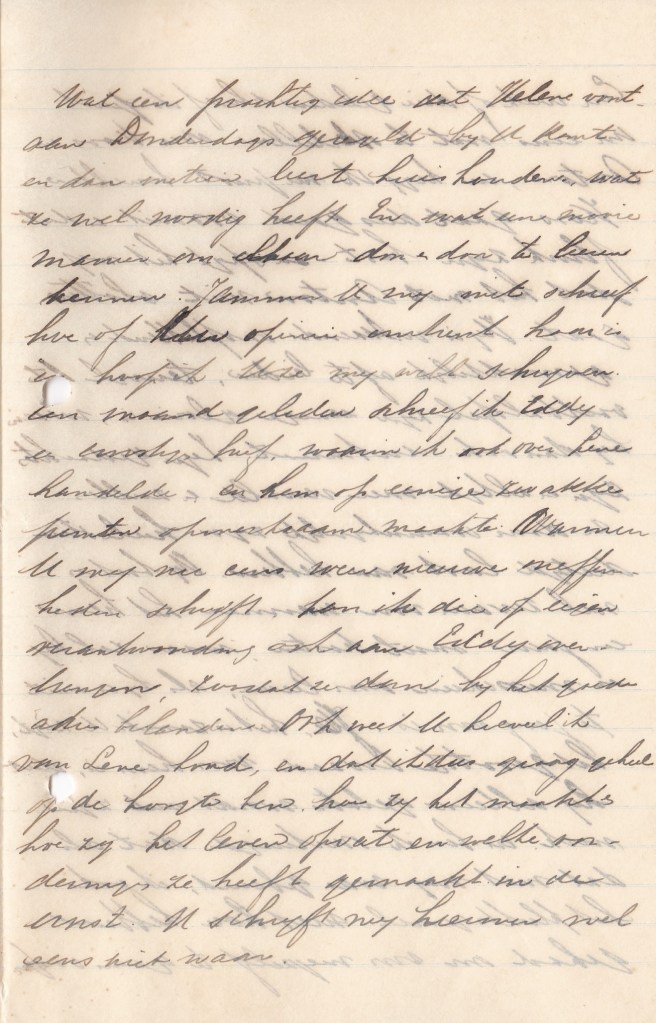 Wat een prachtig idee dat Helene voort-
aan Donderdags geregeld by U komt
en dan meteen leert huishouden, wat
ze wel noodig heeft. En wat eene mooie
manier om elkaar don & don te leeren
kennen. Jammer U my niet schreef
hoe of Uw opinie omtrent haar is
en hoop ik, U ze my wilt schryven.
Een maand geleden schreef ik Eddy
een ernstige brief, waarin ik ook over Lene
handelde en hem op eenige zwakke
punten opmerkzaam maakte. Wanneer
U my nu eens weer nieuwe oneffen-
heden schryft kan ik die op eigen
verantwoording ook aan Eddy over-
brengen, zoodat ze dan by het goede
adres belanden. Ook weet U hoeveel ik
van Lene houd, en dat ik dus graag geheel
op de hoogte ben, hoe zy het maakt &
hoe zy het leven opvat en welke vor-
deringen ze heeft gemaakt in de
ernst. U schryft my hierover wel
eens niet waar.